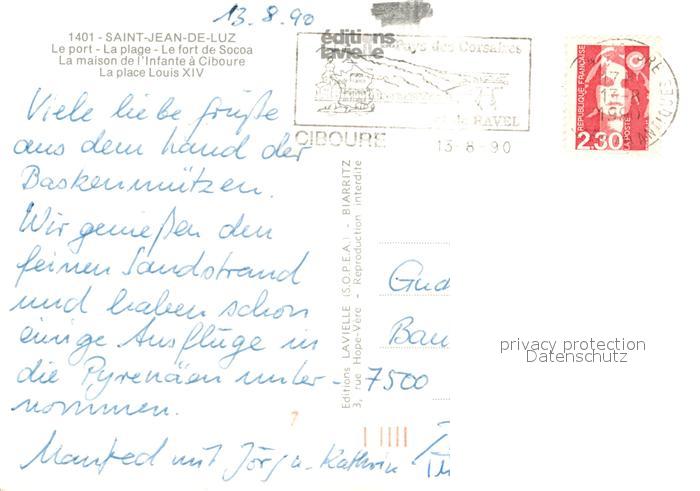 13.8.90
1401 - SAINT-JEAN-DE-LUZ
Le port - La plage - Le fort de Socoa
La maison de l'Infante à Ciboure
La place Louis XIV
éditions
lavielle
Pays des Corsaires
RAVEL
CIBOURE 13-8-90
RÉPUBLIQUE FRANÇAISE
LA POSTE
2,30
Viele liebe Grüße
aus dem Land der
Baskenmützen.
Wir genießen den
feinen Sandstrand
und haben schon
einige Ausflüge in
die Pyrenäen unter-
nommen.
Manfred mit Jörg u. Kathrin
Editions LAVIELLE (S.O.P.E.A.) - BIARRITZ
3, rue Hope-Vère - Reproduction interdite
Gud
Bau
7500
privacy protection
Datenschutz